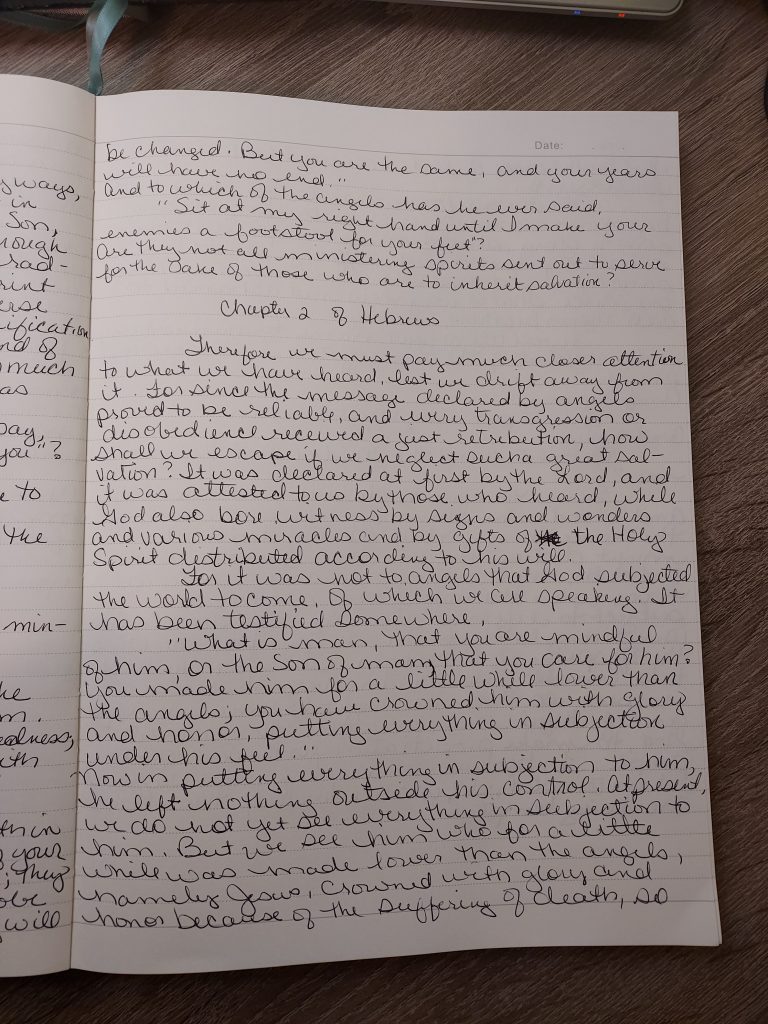 Date:
be changed. But you are the same, and your years
will have no end."
And to which of the angels has he ever said,
"Sit at my right hand until I make your
enemies a footstool for your feet"?
Are they not all ministering spirits sent out to serve
for the sake of those who are to inherit salvation?
Chapter 2 of Hebrews
Therefore we must pay much closer attention
to what we have heard, lest we drift away from
it. For since the message declared by angels
proved to be reliable, and every transgression or
disobedience received a just retribution, how
shall we escape if we neglect such a great sal-
vation? It was declared at first by the Lord, and
it was attested to us by those who heard, while
God also bore witness by signs and wonders
and various miracles and by gifts of the Holy
Spirit distributed according to his will.
For it was not to angels that God subjected
the world to come, of which we are speaking. It
has been testified somewhere,
"What is man, that you are mindful
of him, or the Son of man, that you care for him?
You made him for a little while lower than
the angels; you have crowned him with glory
and honor, putting everything in subjection
under his feet."
Now in putting everything in subjection to him,
he left nothing outside his control. At present,
we do not yet see everything in subjection to
him. But we see him who for a little
while was made lower than the angels,
namely Jesus, crowned with glory and
honor because of the suffering of death, so
y ways,
in
Son,
rough
rad-
rint
erse
ification
nd of
much
as
pay,
you"?
e to
the
min-
he
m.
eadness,
ith
th in
your
; they
obe
will